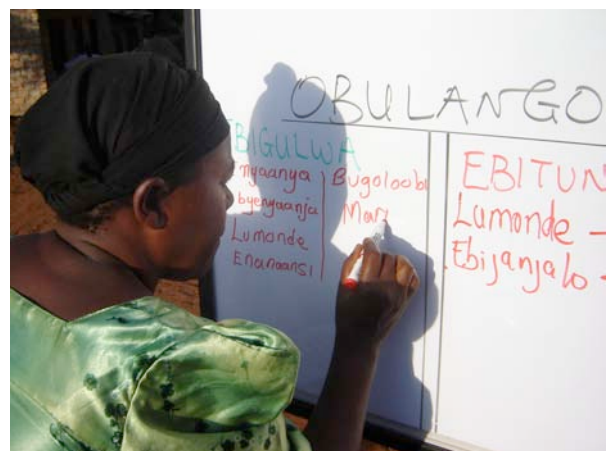 OBULANGO
EBIGULWA
nyaanya
byenyaanja
Lumonde
Enanaansi
Bugoloobi
Mar
EBITUN
Lumonde -
Ebijanjalo -